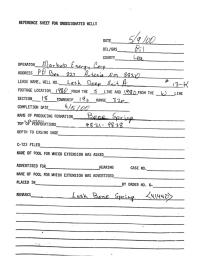 REFERENCE SHEET FOR UNDESIGNATED WELLS
DATE 5/9/00
OIL/GAS Oil
COUNTY Lea
OPERATOR Marbob Energy Corp
ADDRESS PO Box 227 Artesia NM 88210
LEASE NAME, WELL NO. Lusk Deep Unit A # 13-K
FOOTAGE LOCATION 1980 FROM THE S LINE AND 1980 FROM THE W LINE
SECTION 18 TOWNSHIP 19s RANGE 32e
COMPLETION DATE 4/5/00
NAME OF PRODUCING FORMATION Bone Spring
TOP OF PERFORATIONS
DEPTH TO CASING SHOE
C-123 FILED
NAME OF POOL FOR WHICH EXTENSION WAS ASKED
ADVERTISED FOR HEARING CASE NO.
NAME OF POOL FOR WHICH EXTENSION WAS ADVERTISED
PLACED IN BY ORDER NO. R-
REMARKS Lusk Bone Spring (41442)